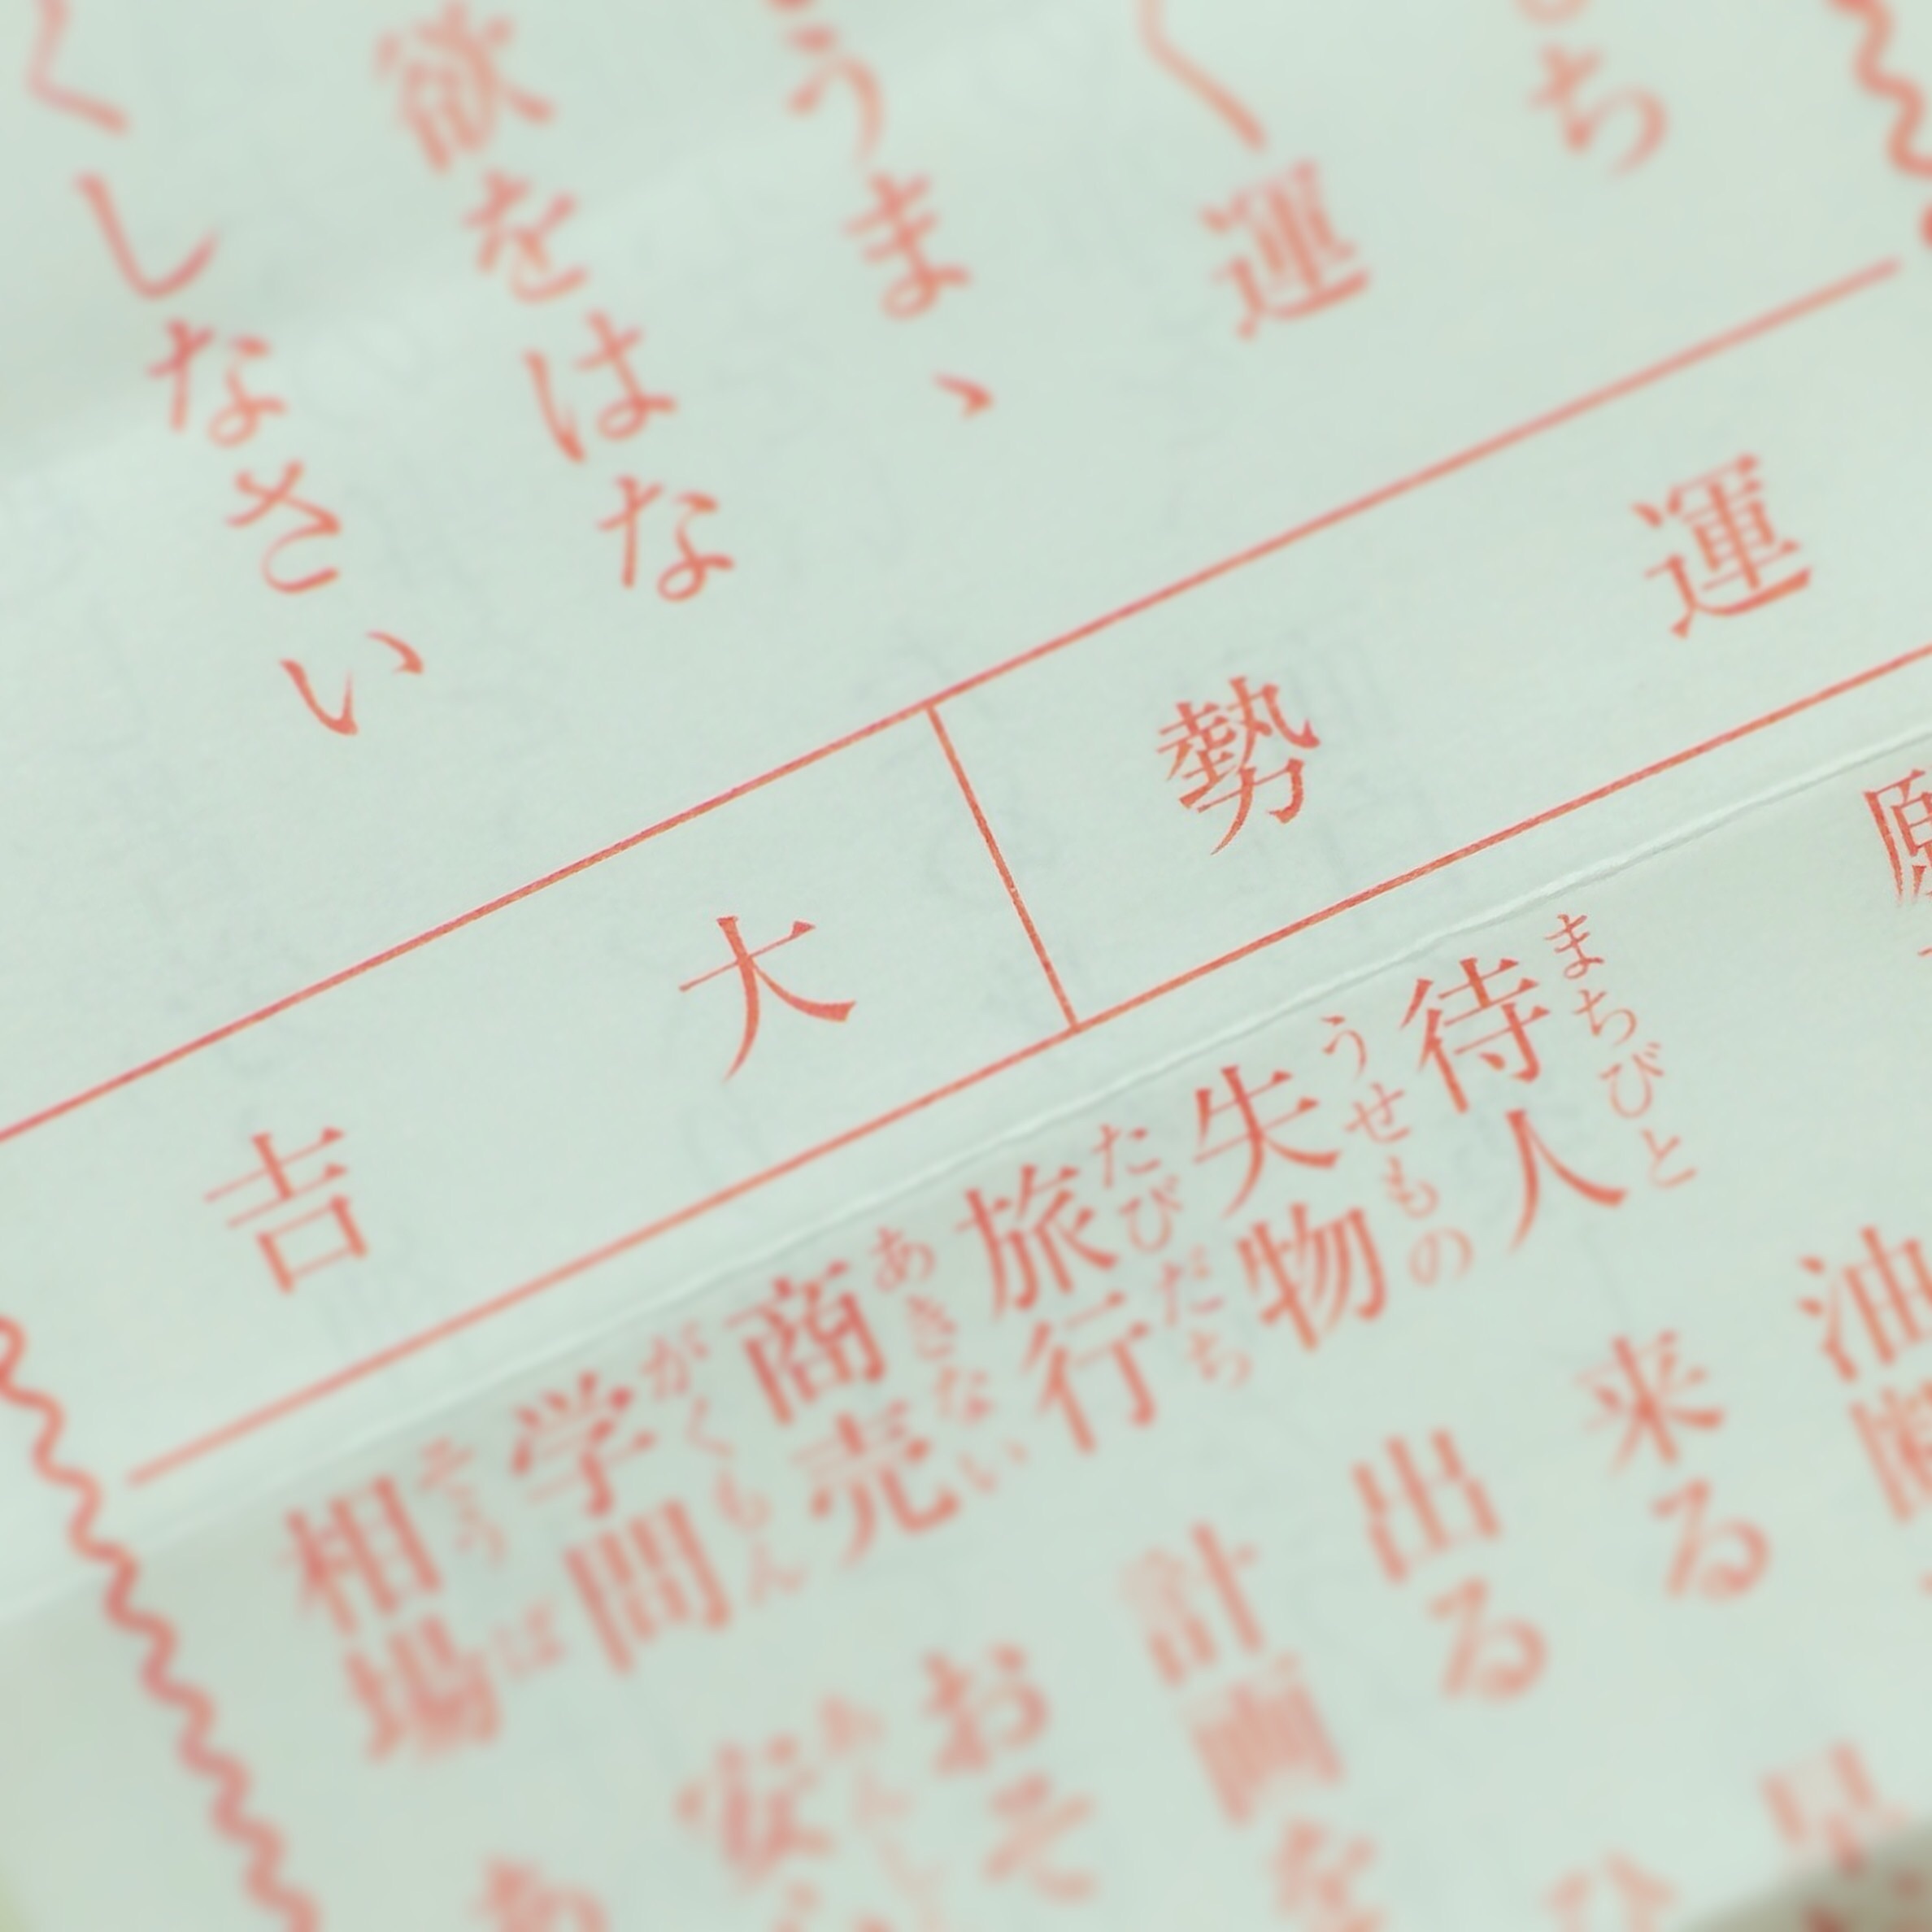 ち
く運
うま、
欲をはな
くしなさい
運勢 大吉
願
油断
待人 来る
まちびと
失物 出る
うせもの
旅行 計画を
たびだち
商売 おそ
あきない
学問 安
がくもん
相場 あ
そうば
早
ひ